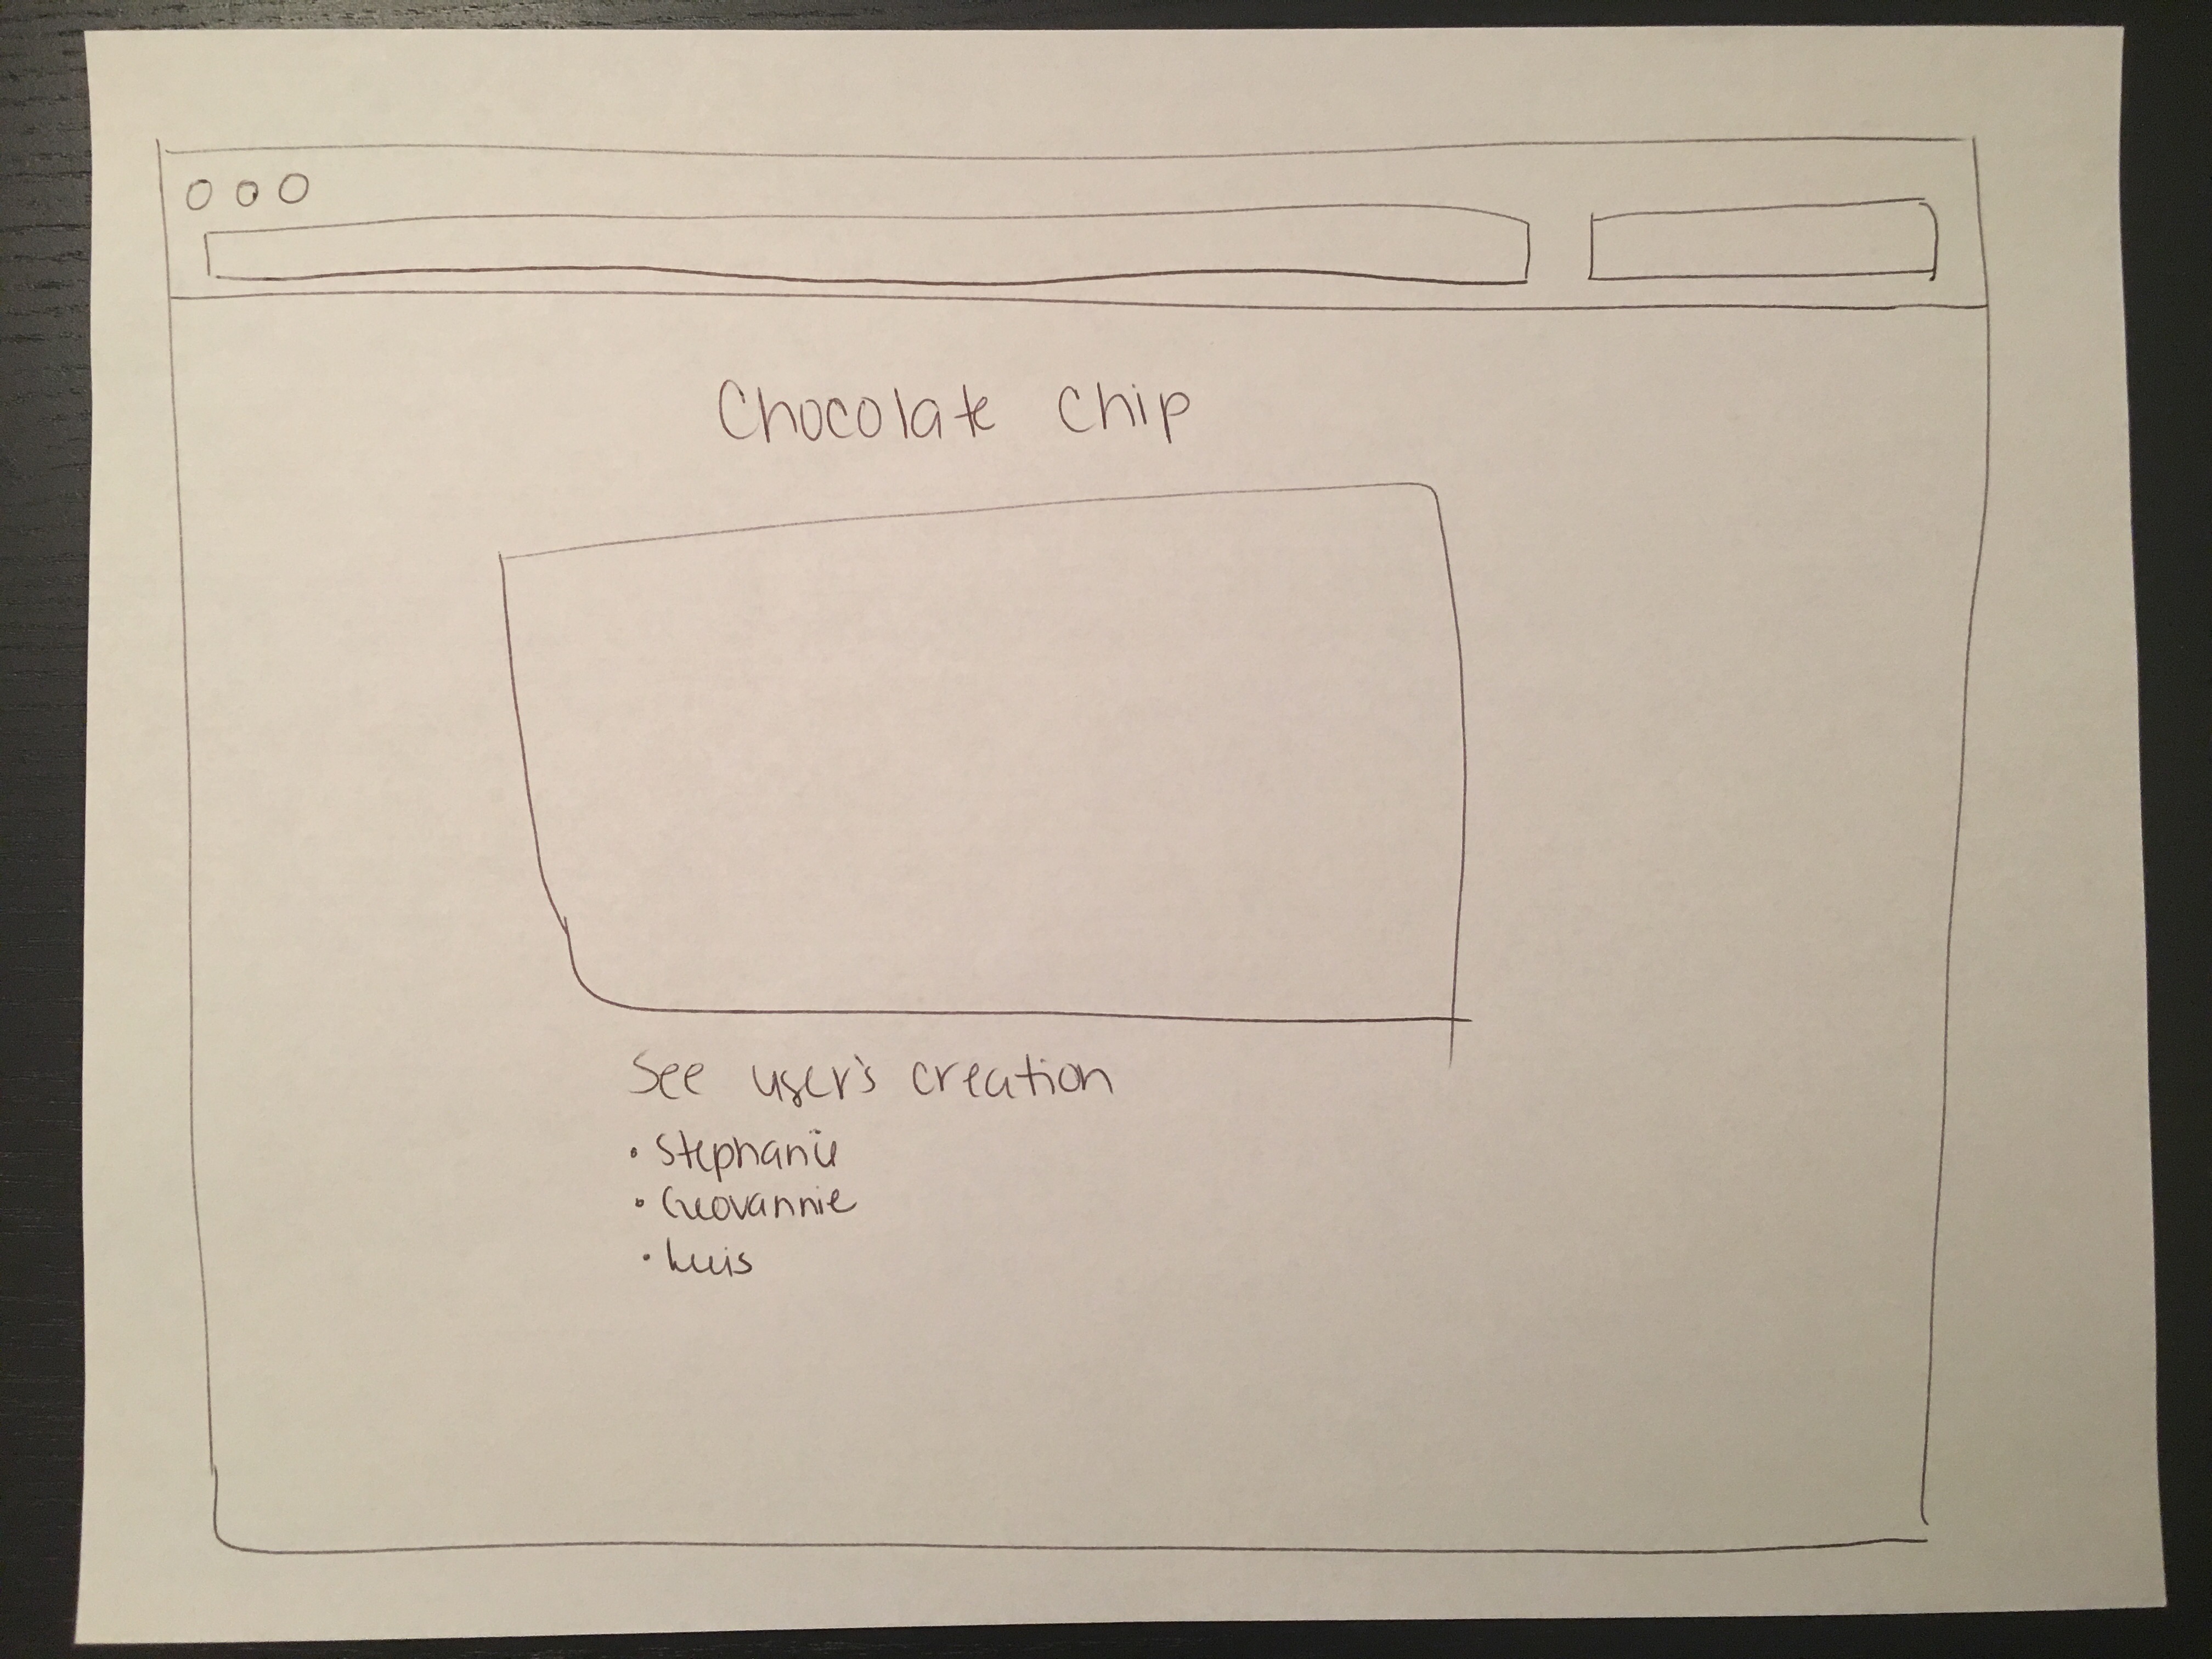 Chocolate Chip
See user's creation
• Stephanie
• Geovannie
• Luis